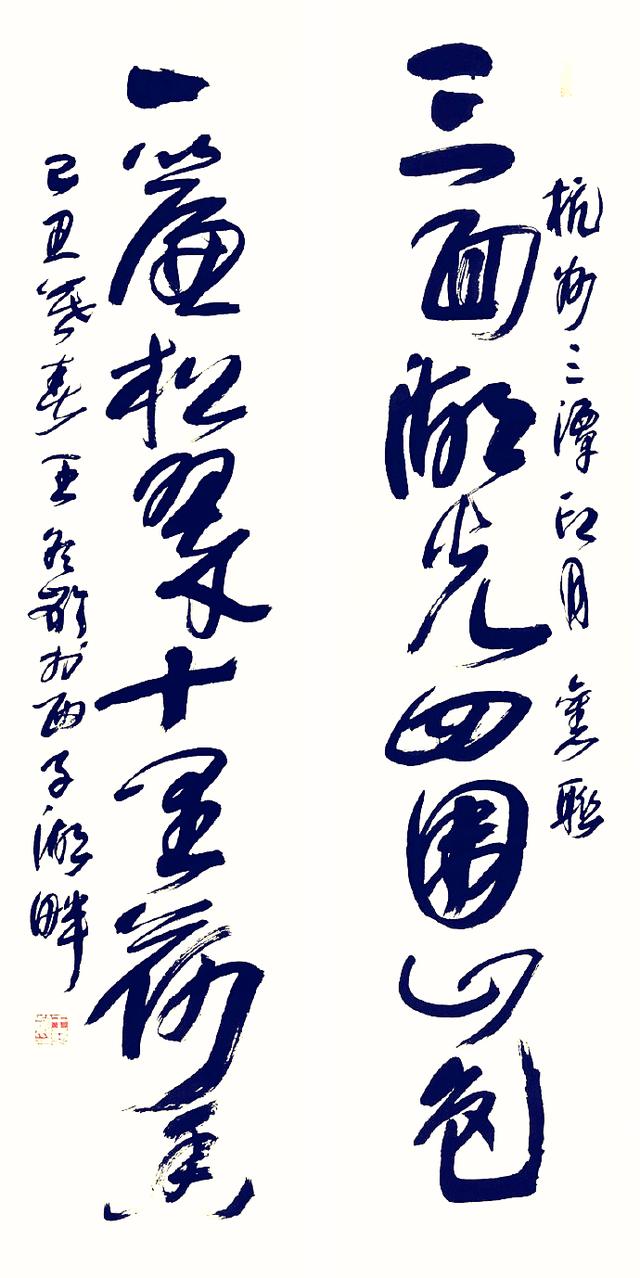 杭州三潭印月旧联
三面湖光四围山色
一帘松翠十里荷香
己丑暮春王冬龄于西子湖畔